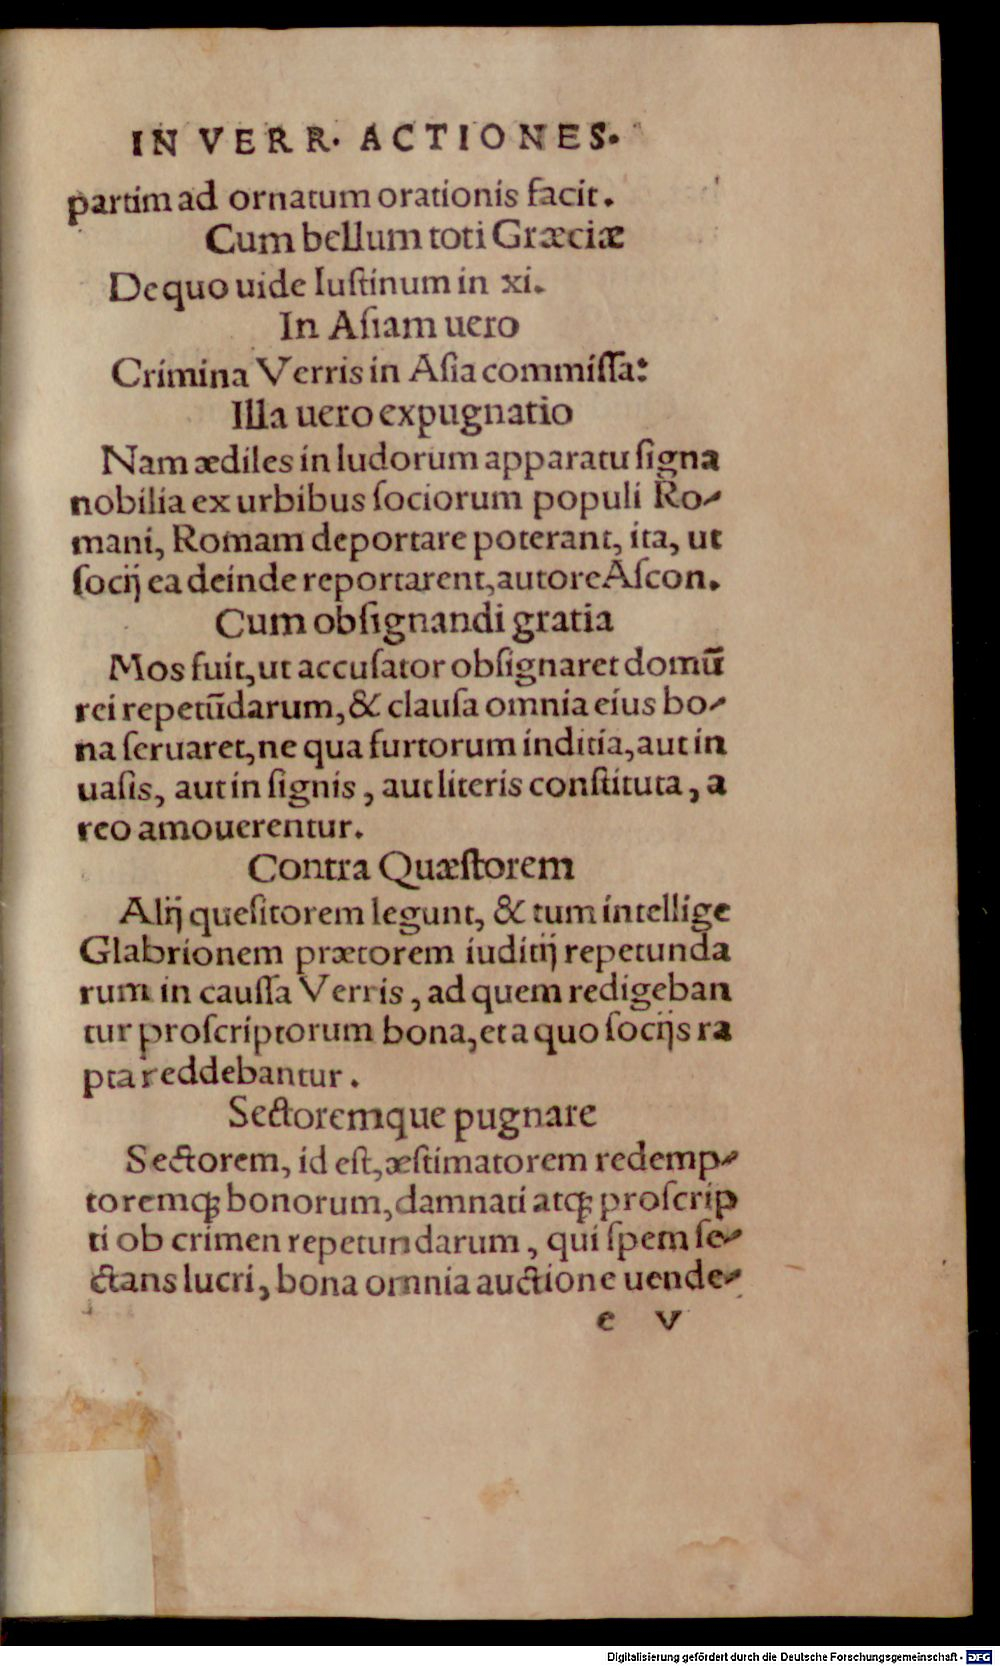 IN VERR. ACTIONES.
partim ad ornatum orationis facit.
Cum bellum toti Græciæ
De quo uide Iuſtinum in xi.
In Aſiam uero
Crimina Verris in Aſia commiſſa:
Illa uero expugnatio
Nam ædiles in ludorum apparatu ſigna
nobilia ex urbibus ſociorum populi Ro-
mani, Romam deportare poterant, ita, ut
ſocij ea deinde reportarent, autore Aſcon.
Cum obſignandi gratia
Mos fuit, ut accuſator obſignaret domū
rei repetūdarum, & clauſa omnia eius bo-
na ſeruaret, ne qua furtorum inditia, aut in
uaſis, aut in ſignis, aut literis conſtituta, a
reo amouerentur.
Contra Quæſtorem
Alij queſitorem legunt, & tum intellige
Glabrionem prætorem iuditij repetunda
rum in cauſſa Verris, ad quem redigeban
tur proſcriptorum bona, et a quo ſocijs ra
pta reddebantur.
Sectoremque pugnare
Sectorem, id eſt, æſtimatorem redemp-
toremq; bonorum, damnati atq; proſcrip
ti ob crimen repetundarum, qui ſpem ſe-
ctans lucri, bona omnia auctione uende-
e v
Digitalisierung gefördert durch die Deutsche Forschungsgemeinschaft - DFG